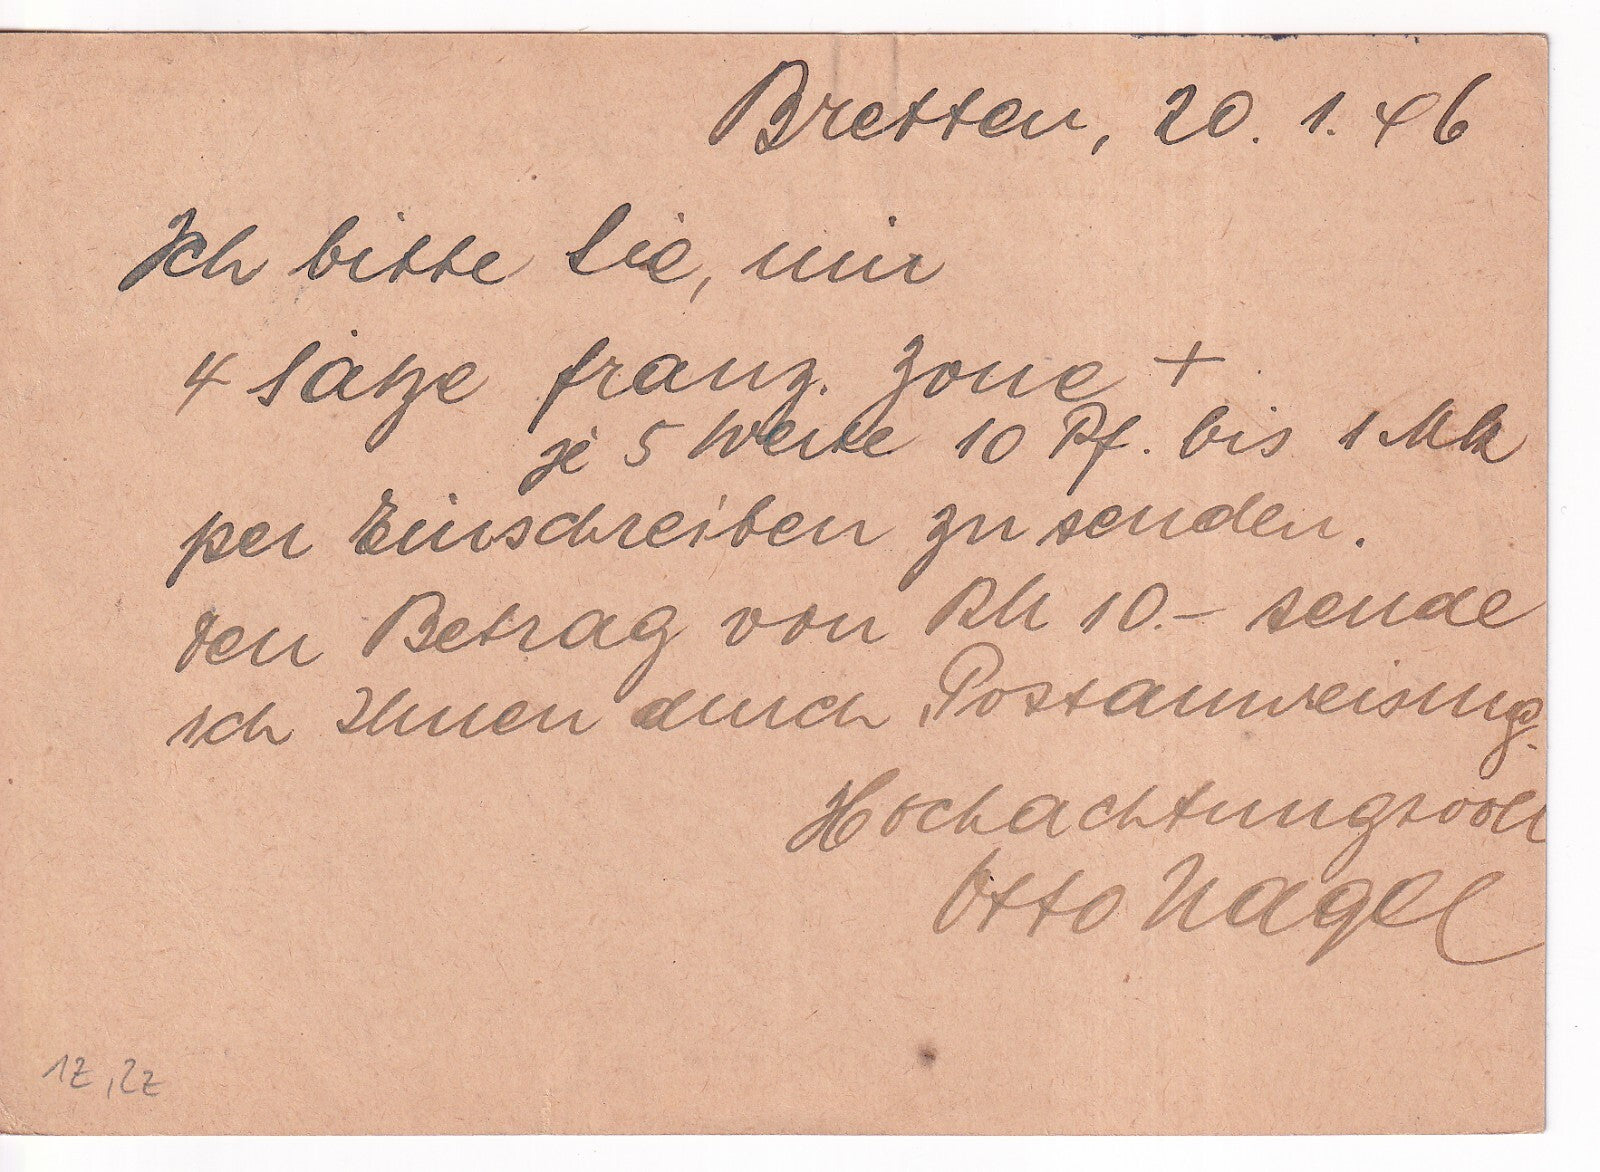 Bretten, 20. 1. 46
Ich bitte Sie, mir
4 Sätze franz. Zone +
je 5 Werte 10 Pf. bis 1 Mk
per Einschreiben zu senden.
Den Betrag von RM 10.– sende
ich Ihnen durch Postanweisung.
Hochachtungsvoll
Otto Nagel
1Z, 2Z